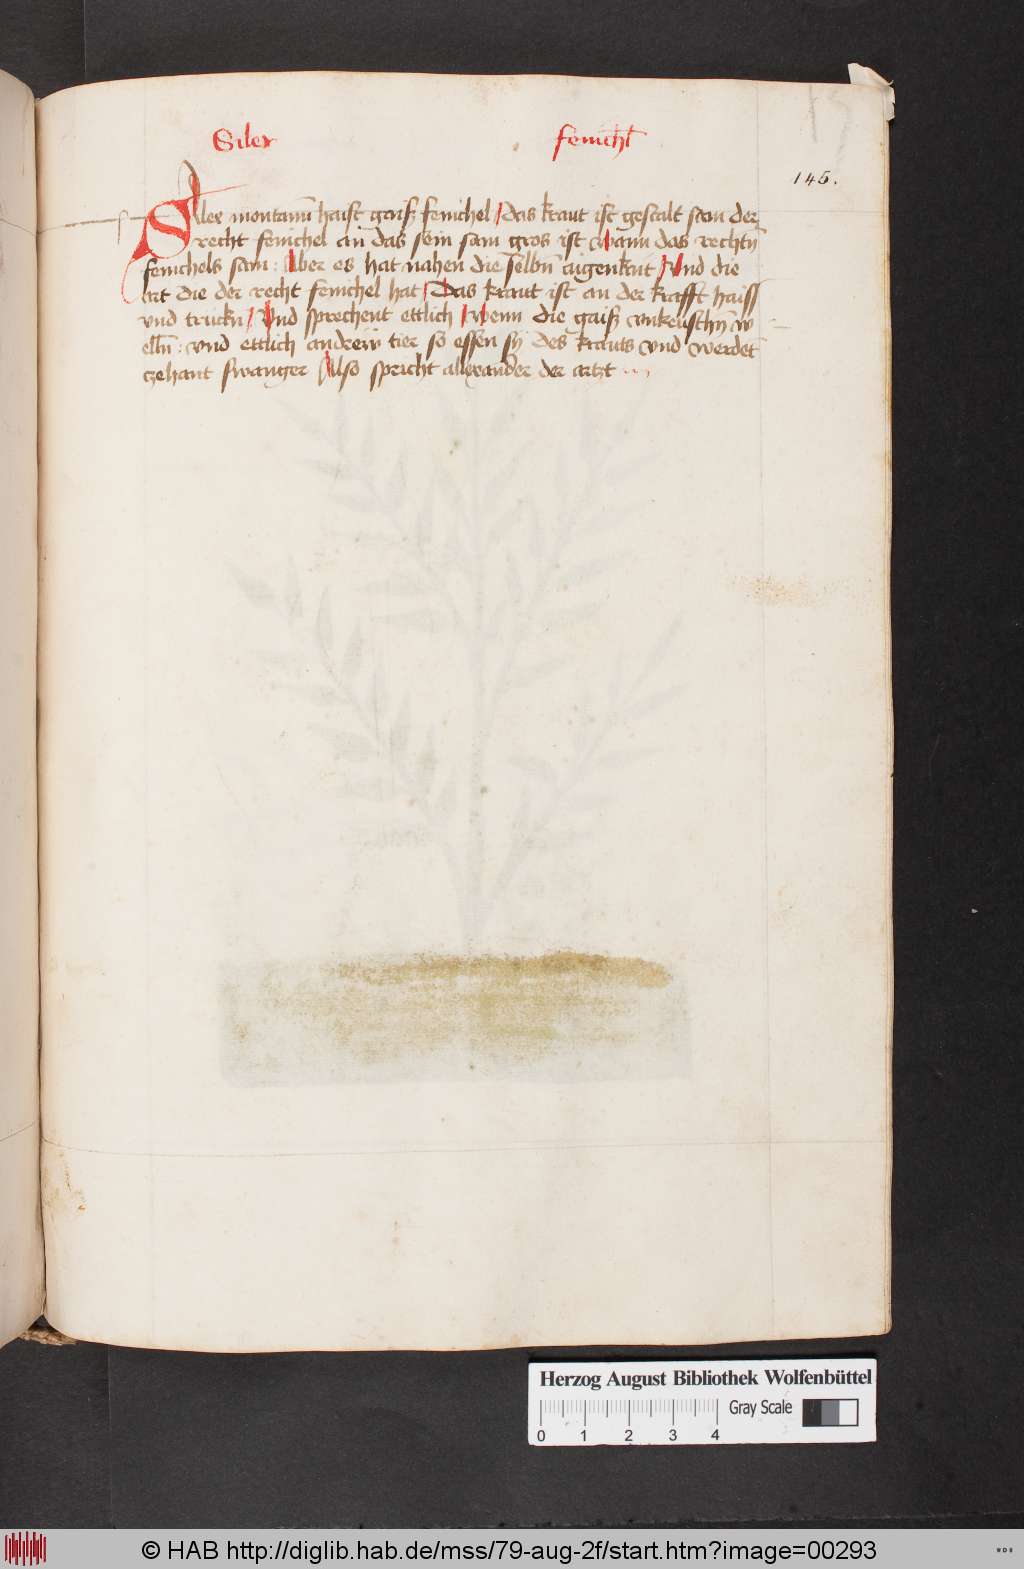 Siler
fenichl
145.
Siler montanū haist gaiſz fenichel / das kraut ist gestalt sam der
recht fenichel an das sein sam gros ist wann das rechtn̄
fenichels sam : Aber es hat nahen die selbn̄ aigenkait / Und die
art die der recht fenichel hat / Das kraut ist an der krafft haiss
vnd truckn̄ / Und sprechent ettlich / wenn die gaiſz vnkeuschn̄ w
elln̄ : vnd ettlich andrew tier so essen sy des krauts vnd werdet̄
czehant swanger / Also spricht allexander der artzt
Herzog August Bibliothek Wolfenbüttel
Gray Scale
0 1 2 3 4
© HAB http://diglib.hab.de/mss/79-aug-2f/start.htm?image=00293